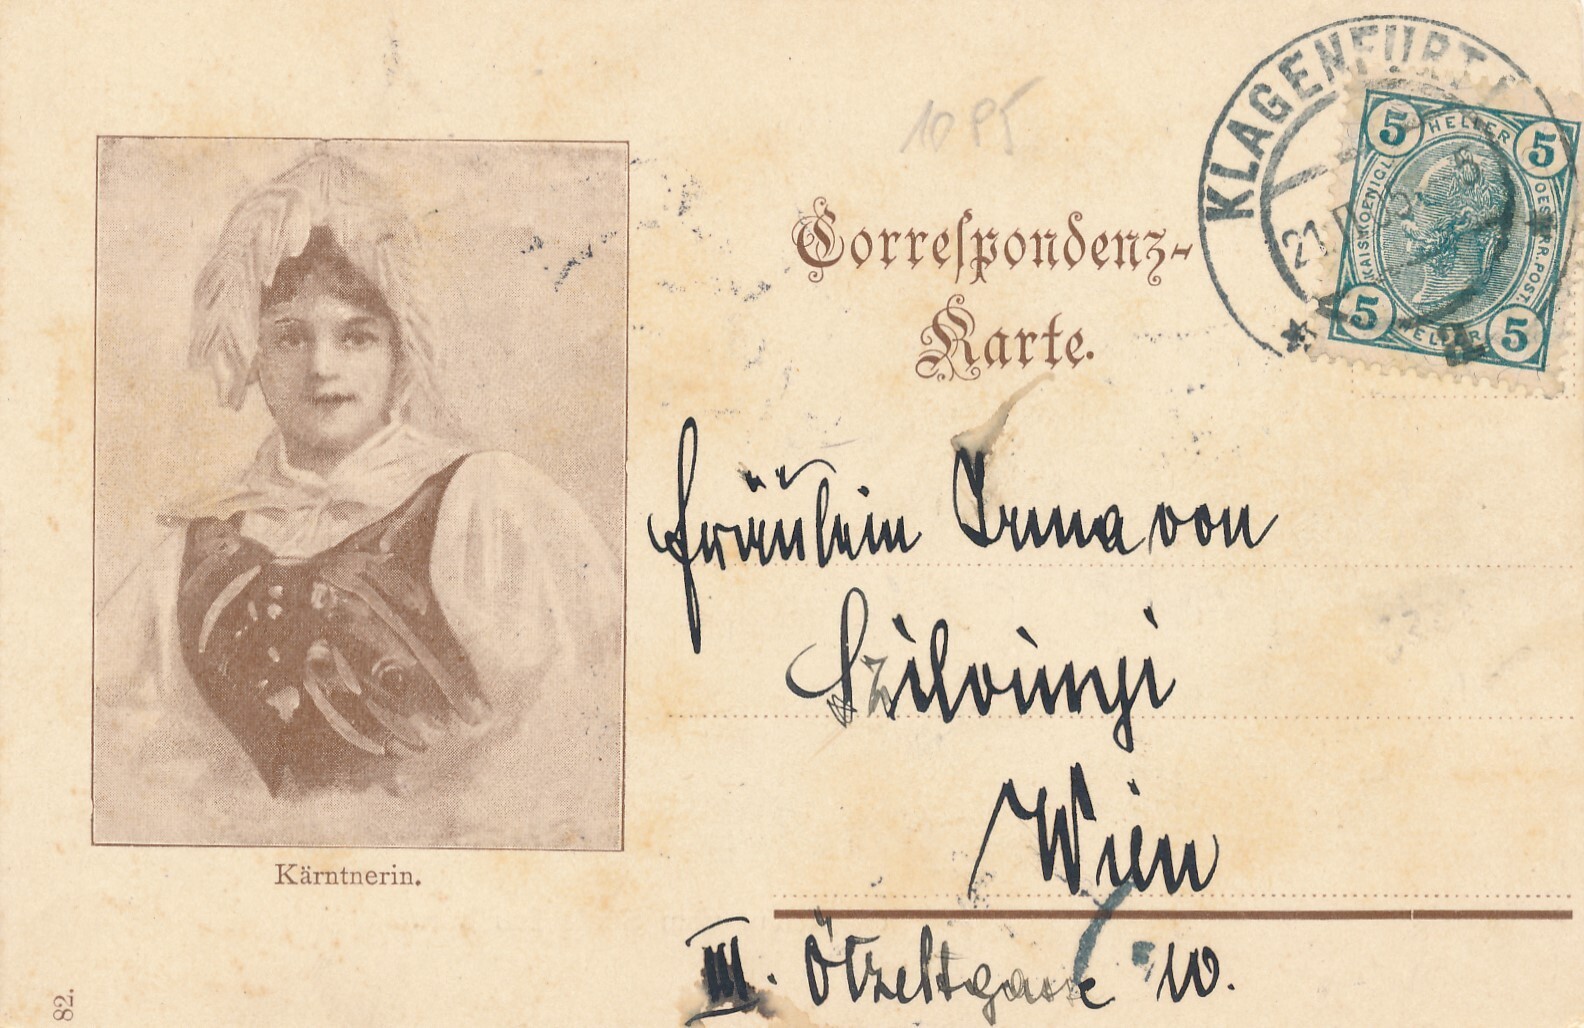 KLAGENFURT
21.
5 HELLER 5
KAISKOENIGL.
OESTERR.POST.
5 HELLER 5
10 Pf
Correspondenz-
Karte.
Fräulein Irma von
Wien
III. Ötzeltgasse 10.
Kärntnerin.
82.